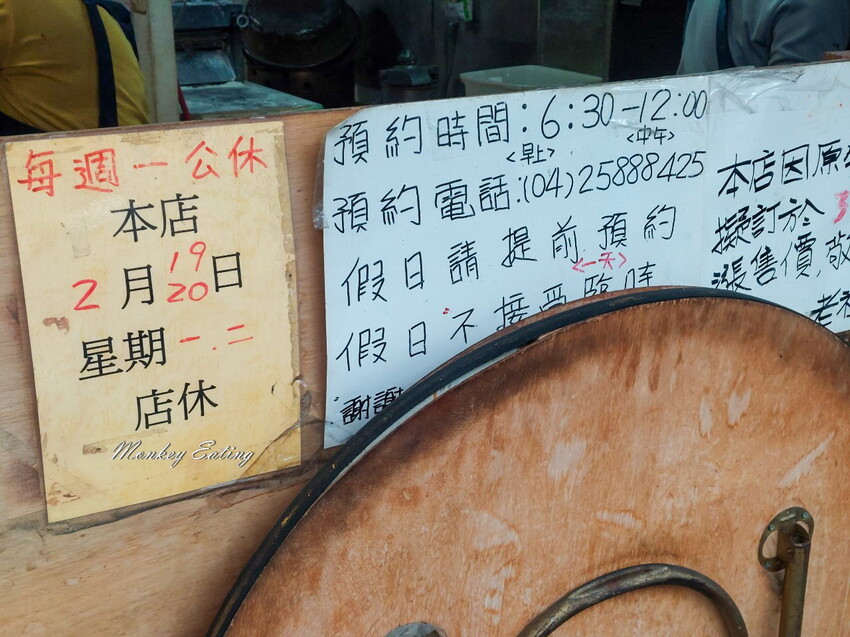 每週一公休
本店
2月19日
20
星期一.二
店休
Monkey Eating
預約時間:6:30-12:00
<早上> <中午>
預約電話:(04)25888425
假日請提前預約
<一天>
假日不接受臨時
謝謝
本店因原
擬訂於
漲售價,敬
老